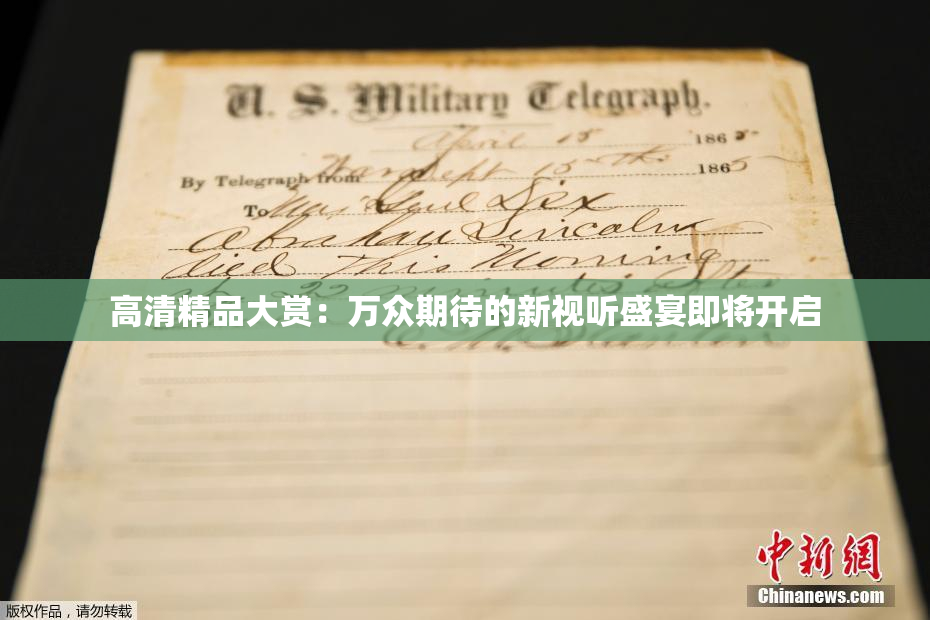 U. S. Military Telegraph.
April 15 1865
By Telegraph from War Dept 15th 1865
To Maj Genl Dix
Abraham Lincoln
died This Morning
at 22 minutes after
高清精品大赏：万众期待的新视听盛宴即将开启
E. M. Stanton
中新网
Chinanews.com
版权作品，请勿转载